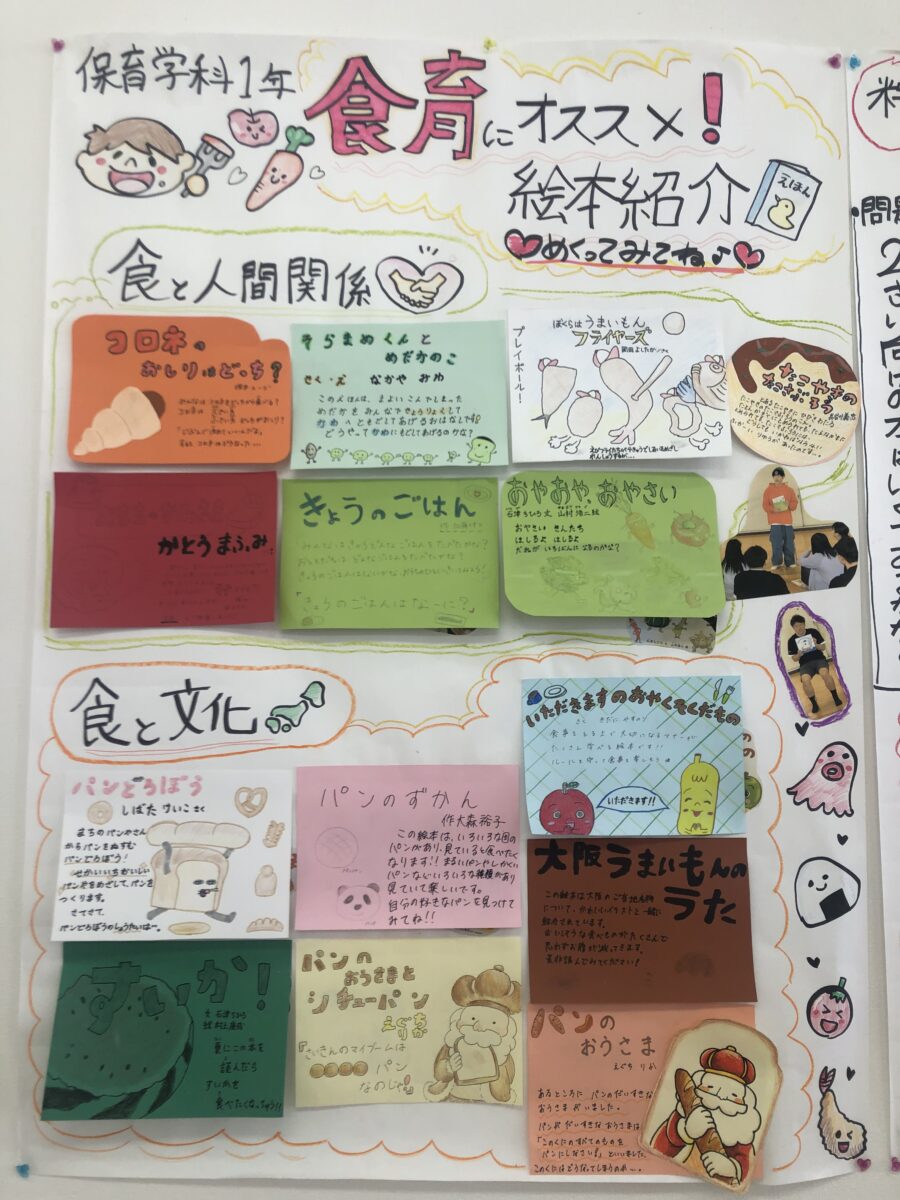 保育学科1年
食育にオススメ!
絵本紹介
えほん
めくってみてね♪
食と人間関係
コロネの
おしりはどっち?
そらまめくんと
めだかのこ
さく・え なかや みわ
この人ほんは、まよいこんでしまった
めだかをみんなできょうりょくして
かわへともどしてあげるおはなしです!
どうやってかわにもどしてあげるのかな?
プレイボール!
ぼくらはうまいもん
フライヤーズ
岡田よしたか
たこやきの
たこさぶろう
かとうまふみ
きょうのごはん
みんなはきょうどんなごはんをたべたかな?
「きょうのごはんはなーに?」
おやおや、おやさい
石津ちひろ文 山村浩二絵
おやさいさんたち
はしるよ はしるよ
だれが いちばんになるのかな?
食と文化
いただきますのおやくそくだもの
食事をする上で大切になるマナーが
たくさん学べる絵本です!!
ルールを守って食事を楽しもう
いただきます!!
パンどろぼう
しばた けいこ さく
まちのパンやさん
からパンをぬすむ
パンどろぼう!
せかいいちおいしい
パンやをめざして、パンを
つくります。
さてさて、
パンどろぼうのしょうたいは…。
パンのずかん
作 大森裕子
この絵本は、いろいろな国の
パンがあり、見ていると食べたく
なります!!まるいパンやしかくい
パンなどいろいろな種類があり
見ていて楽しいです。
自分の好きなパンを見つけて
みてね!!
大阪うまいもんの
うた
この絵本は大阪のご当地名物
について、かわいいイラストと一緒に
紹介されています。
おいしそうな食べものがたくさんで
思わずお腹が減ってきます。
是非読んでみてください!
すいか!
文 石津ちひろ
絵 村上康成
夏にこの本を
読んだら
すいかを
食べたくなっちゃう!!
パンの
おうさまと
シチューパン
えぐちりか
『さいきんのマイブームは
パン
なのじゃ!』
パンの
おうさま
えぐち りか
あるところに パンのだいすきな
おうさまがいました。
パンがだいすきな おうさまは
「このくにのすべてのものを
パンにしなさい!」といいました。
このくにはどうなってしまうのか…。
問題
2さい向けの本はいつ